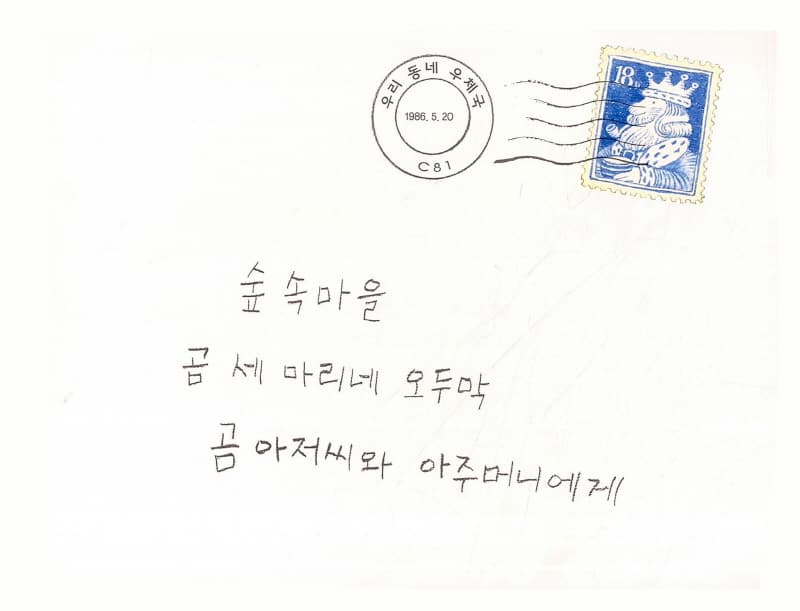 우리 동네 우체국
1986. 5. 20
C81
18
숲 속마을
곰 세 마리네 오두막
곰 아저씨와 아주머니에게